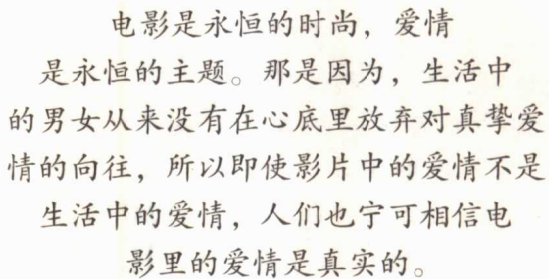 电影是永恒的时尚，爱情
是永恒的主题。那是因为，生活中
的男女从来没有在心底里放弃对真挚爱
情的向往，所以即使影片中的爱情不是
生活中的爱情，人们也宁可相信电
影里的爱情是真实的。